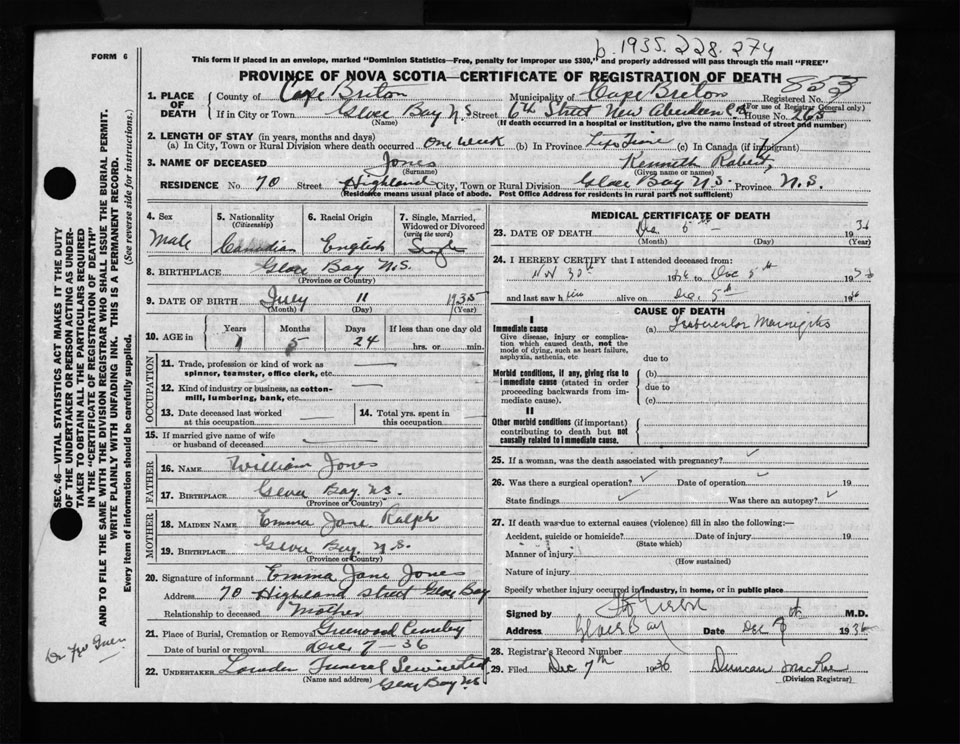 b. 1935. 228. 274
FORM 6
This form if placed in an envelope, marked "Dominion Statistics—Free, penalty for improper use $300," and properly addressed will pass through the mail "FREE"
PROVINCE OF NOVA SCOTIA—CERTIFICATE OF REGISTRATION OF DEATH
Registered No. 853
(For use of Registrar General only)
1. PLACE OF DEATH
County of Cape Breton Municipality of Cape Breton
If in City or Town Glace Bay N.S. Street 6th Street New Aberdeen C.B. House No. 265
(Name) (If death occurred in a hospital or institution, give the name instead of street and number)
2. LENGTH OF STAY (in years, months and days)
(a) In City, Town or Rural Division where death occurred One week (b) In Province Life Time (c) In Canada (if immigrant)
3. NAME OF DECEASED Jones Kenneth Robert
(Surname) (Given name or names)
RESIDENCE No. 70 Street Highland City, Town or Rural Division Glace Bay N.S. Province N.S.
(Residence means usual place of abode. Post Office Address for residents in rural parts not sufficient)
4. Sex Male
5. Nationality (Citizenship) Canadian
6. Racial Origin English
7. Single, Married, Widowed or Divorced (write the word) Single
8. BIRTHPLACE Glace Bay N.S.
(Province or Country)
9. DATE OF BIRTH July 11 1935
(Month) (Day) (Year)
10. AGE in Years Months Days If less than one day old
1 5 24 hrs. or min.
OCCUPATION
11. Trade, profession or kind of work as spinner, teamster, office clerk, etc.
12. Kind of industry or business, as cotton-mill, lumbering, bank, etc.
13. Date deceased last worked at this occupation
14. Total yrs. spent in this occupation
15. If married give name of wife or husband of deceased
FATHER
16. NAME William Jones
17. BIRTHPLACE Glace Bay N.S.
(Province or Country)
MOTHER
18. MAIDEN NAME Emma Jane Ralph
19. BIRTHPLACE Glace Bay, N.S.
(Province or Country)
20. Signature of informant Emma Jane Jones
Address 70 Highland Street Glace Bay
Relationship to deceased Mother
21. Place of Burial, Cremation or Removal Greenwood
Date of burial or removal Dec 7-36
22. UNDERTAKER Funeral Service
(Name and address) Glace Bay N.S.
MEDICAL CERTIFICATE OF DEATH
23. DATE OF DEATH Dec 5th 1936
(Month) (Day) (Year)
24. I HEREBY CERTIFY that I attended deceased from:
Nov 30th 1936 to Dec 5th 1936
and last saw him alive on Dec. 5th 1936
CAUSE OF DEATH
I
Immediate cause (a) Tubercular Meningitis
Give disease, injury or complication which caused death, not the mode of dying, such as heart failure, asphyxia, asthenia, etc.
due to
Morbid conditions, if any, giving rise to immediate cause (stated in order proceeding backwards from immediate cause).
(b)
due to
(c)
II
Other morbid conditions (if important) contributing to death but not causally related to immediate cause.
25. If a woman, was the death associated with pregnancy?
26. Was there a surgical operation? Date of operation 19
State findings Was there an autopsy?
27. If death was due to external causes (violence) fill in also the following:—
Accident, suicide or homicide? Date of injury 19
(State which)
Manner of injury
(How sustained)
Nature of injury
Specify whether injury occurred in industry, in home, or in public place
Signed by M.D.
Address Glace Bay Date Dec 1936
28. Registrar's Record Number
29. Filed Dec 7th 1936 Duncan MacRae
(Division Registrar)
SEC. 46—VITAL STATISTICS ACT MAKES IT THE DUTY
OF THE UNDERTAKER OR PERSON ACTING AS UNDER-
TAKER TO OBTAIN ALL THE PARTICULARS REQUIRED
IN THE "CERTIFICATE OF REGISTRATION OF DEATH"
AND TO FILE THE SAME WITH THE DIVISION REGISTRAR WHO SHALL ISSUE THE BURIAL PERMIT.
WRITE PLAINLY WITH UNFADING INK. THIS IS A PERMANENT RECORD.
Every item of information should be carefully supplied. (See reverse side for instructions.)
Dr